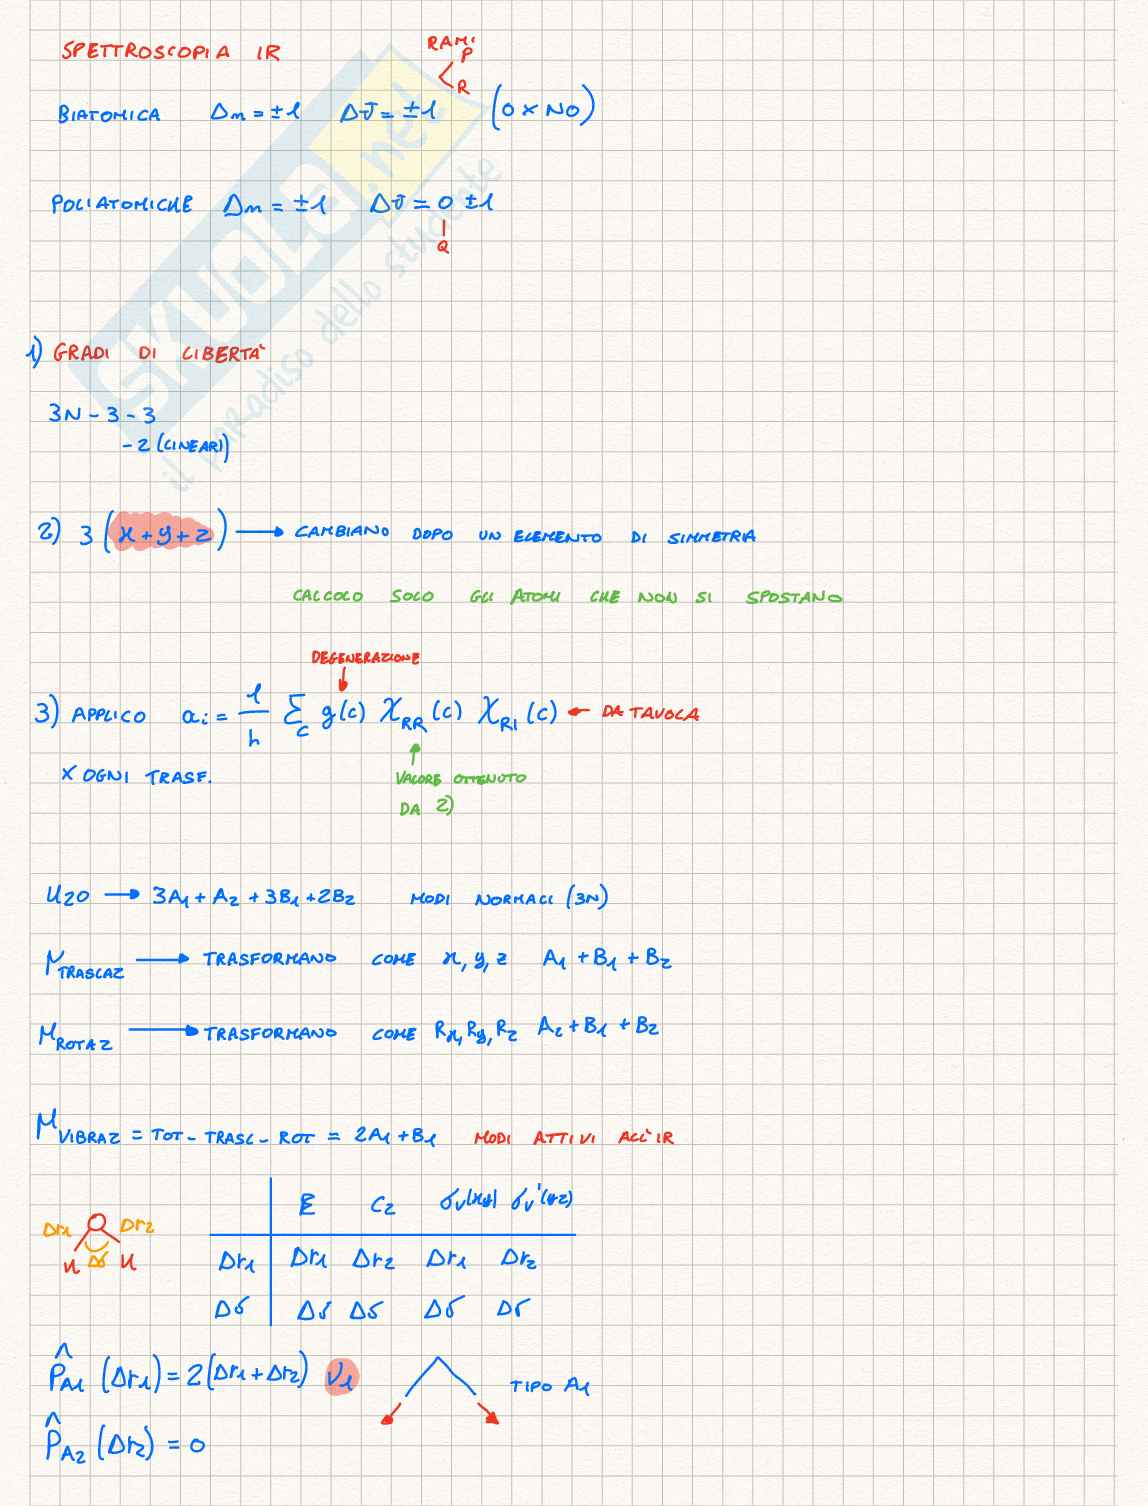 SPETTROSCOPIA IR
RAMI
P
R
BIATOMICA Δn = ±1 ΔJ = ±1 (0 x NO)
POLIATOMICHE Δn = ±1 ΔJ = 0 ±1
Q
SKUOLA.net
il paradiso dello studente
1) GRADI DI LIBERTA'
3N - 3 - 3
- 2 (LINEARI)
2) 3 (x+y+z) → CAMBIANO DOPO UN ELEMENTO DI SIMMETRIA
CALCOLO SOLO GLI ATOMI CHE NON SI SPOSTANO
DEGENERAZIONE
3) APPLICO ai = 1/h Σc g(c) χRR (c) χRI (c) ← DA TAVOLA
X OGNI TRASF.
VALORE OTTENUTO
DA 2)
H2O → 3A1 + A2 + 3B1 + 2B2 MODI NORMALI (3N)
ΓTRASLAZ → TRASFORMANO COME x, y, z A1 + B1 + B2
ΓROTAZ → TRASFORMANO COME Rx, Ry, Rz A2 + B1 + B2
ΓVIBRAZ = TOT - TRASL - ROT = 2A1 + B1 MODI ATTIVI ALL'IR
E C2 σv(xy) σv'(yz)
Δr1 Δr2
H Δδ H
Δr1 Δr1 Δr2 Δr1 Δr2
Δδ Δδ Δδ Δδ Δδ
P̂A1 (Δr1) = 2(Δr1 + Δr2) ν1
TIPO A1
P̂A2 (Δr2) = 0